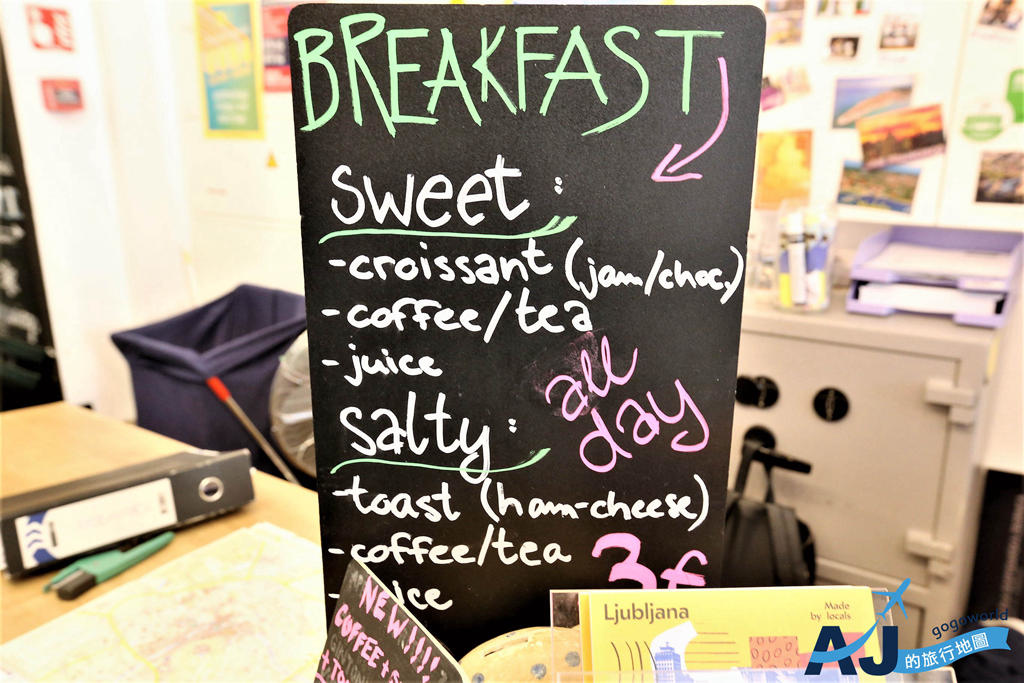 BREAKFAST
sweet:
-croissant (jam/choc.)
-coffee/tea
-juice
all
day
salty:
-toast (ham-cheese)
-coffee/tea
3€
NEW!!!!
COFFEE+
Ljubljana
Made
by locals
gogoworld
AJ
的旅行地圖